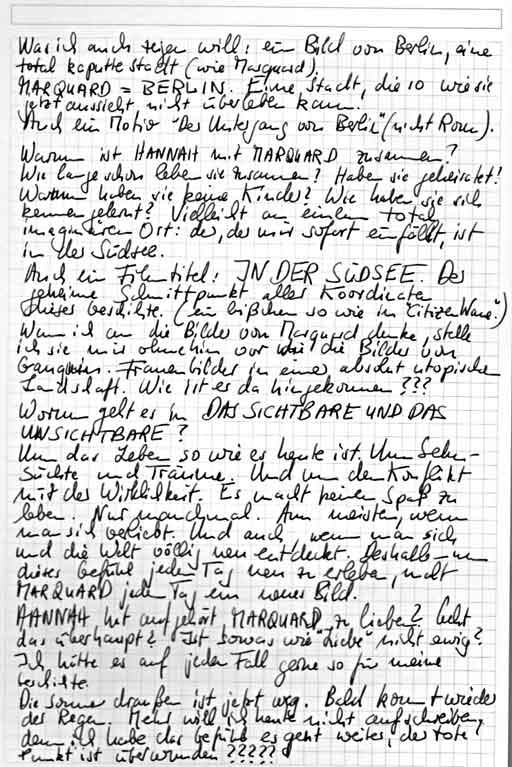 Was ich auch zeigen will: ein Bild von Berlin, eine
total kaputte Stadt (wie Marquard).
MARQUARD = BERLIN. Eine Stadt, die so wie sie
jetzt aussieht nicht überleben kann.
Auch ein Motiv "Der Untergang von Berlin" (nicht Rom).
Warum ist HANNAH mit MARQUARD zusammen?
Wie lange schon leben sie zusammen? Haben sie geheiratet?
Warum haben sie keine Kinder? Wie haben sie sich
kennengelernt? Vielleicht an einem total
imaginären Ort: der, der mir sofort einfällt, ist
in der Südsee.
Auch ein Filmtitel: IN DER SÜDSEE. Der
geheime Schnittpunkt aller Koordinaten
dieser Geschichte. (ein bißchen so wie in "Citizen Kane".)
Wenn ich an die Bilder von Marquard denke, stelle
ich sie mir ohnehin vor wie die Bilder von
Gauguin. Frauenbilder in einer absolut utopischen
Landschaft. Wie ist er da hingekommen???
Worum geht es in DAS SICHTBARE UND DAS
UNSICHTBARE?
Um das Leben so wie es heute ist. Um Sehn-
süchte und Träume. Und um den Konflikt
mit der Wirklichkeit. Es macht keinen Spaß zu
leben. Nur manchmal. Am meisten, wenn
man sich verliebt. Und auch, wenn man sich
und die Welt völlig neu entdeckt. Deshalb – um
dieses Gefühl jeden Tag neu zu erleben, malt
MARQUARD jeden Tag ein neues Bild.
HANNAH hat aufgehört, MARQUARD zu lieben? Geht
das überhaupt? Ist sowas wie "Liebe" nicht ewig?
Ich hätte es auf jeden Fall gerne so für meine
Geschichte.
Die Sonne draußen ist jetzt weg. Bald kommt wieder
der Regen. Mehr will ich heute nicht aufschreiben,
denn ich habe das Gefühl es geht weiter, der tote
Punkt ist überwunden ?????